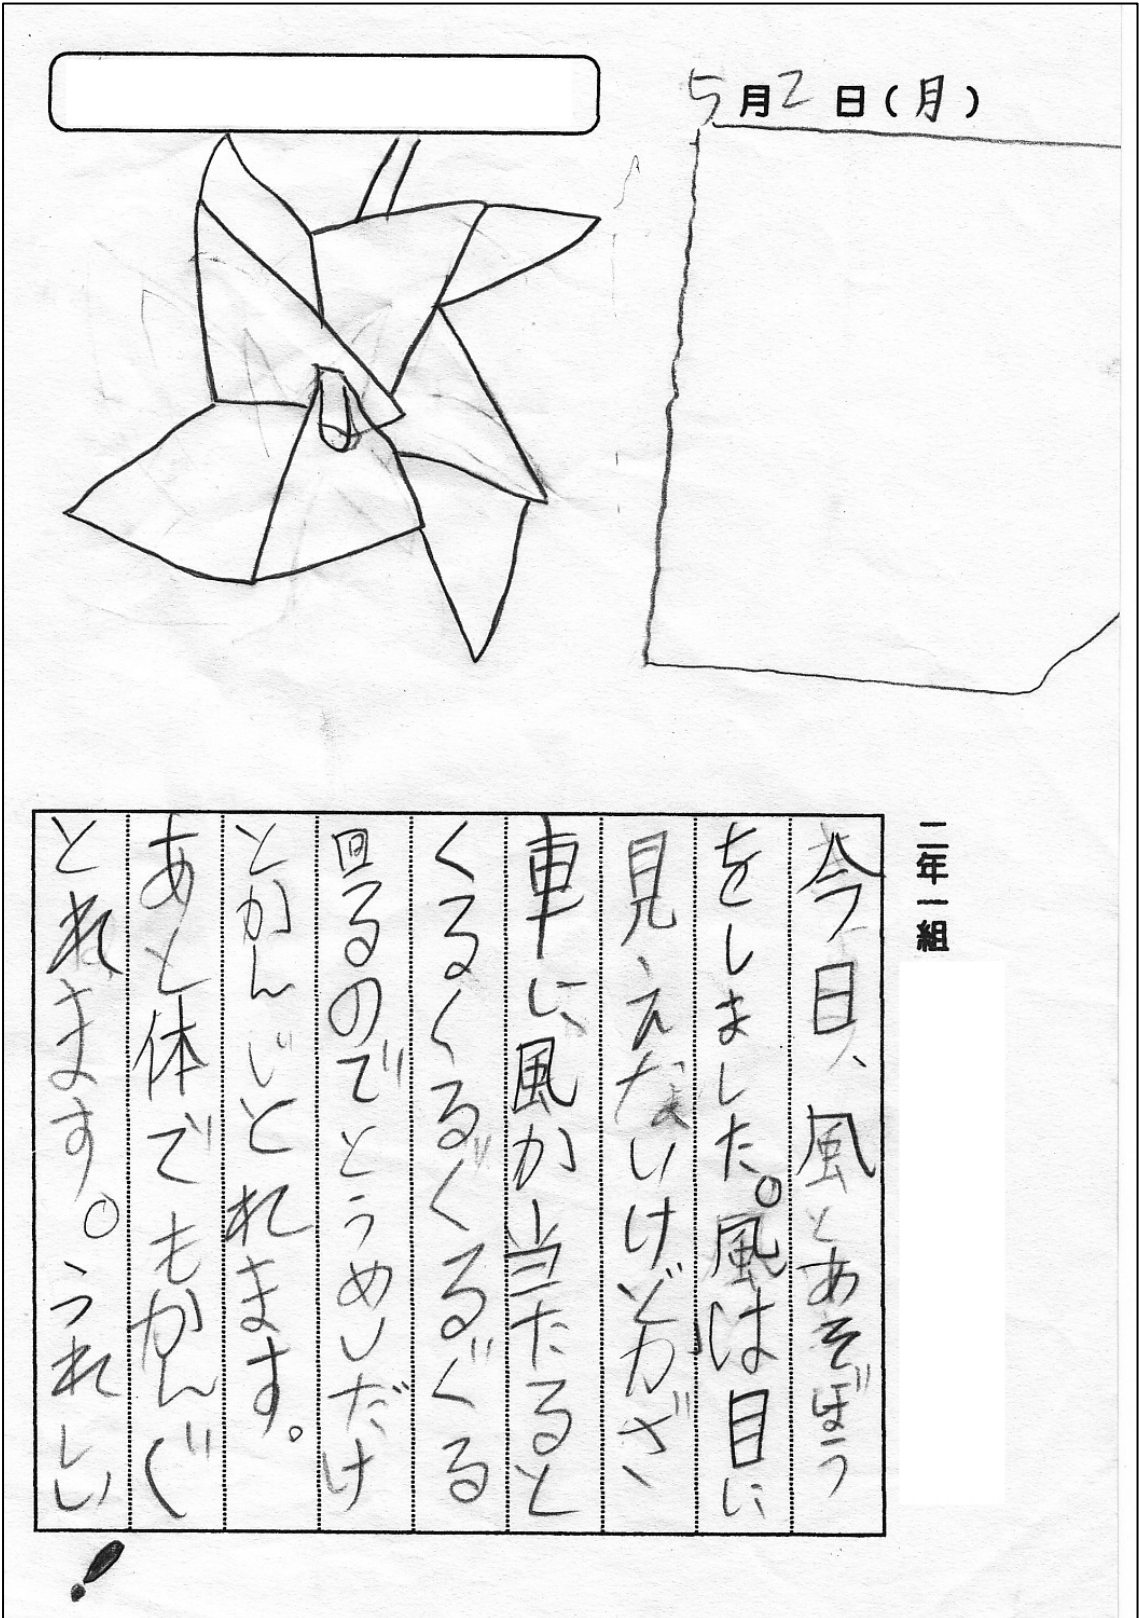 5月2日(月)
二年一組
今日、風とあそぼう
をしました。風は目に
見えないけどかざ
車に風か当たると
くるくるぐるぐるぐる
回るのでとうめいだけ
とかんじとれます。
あと体でもかんじ
とれます。うれしい
!